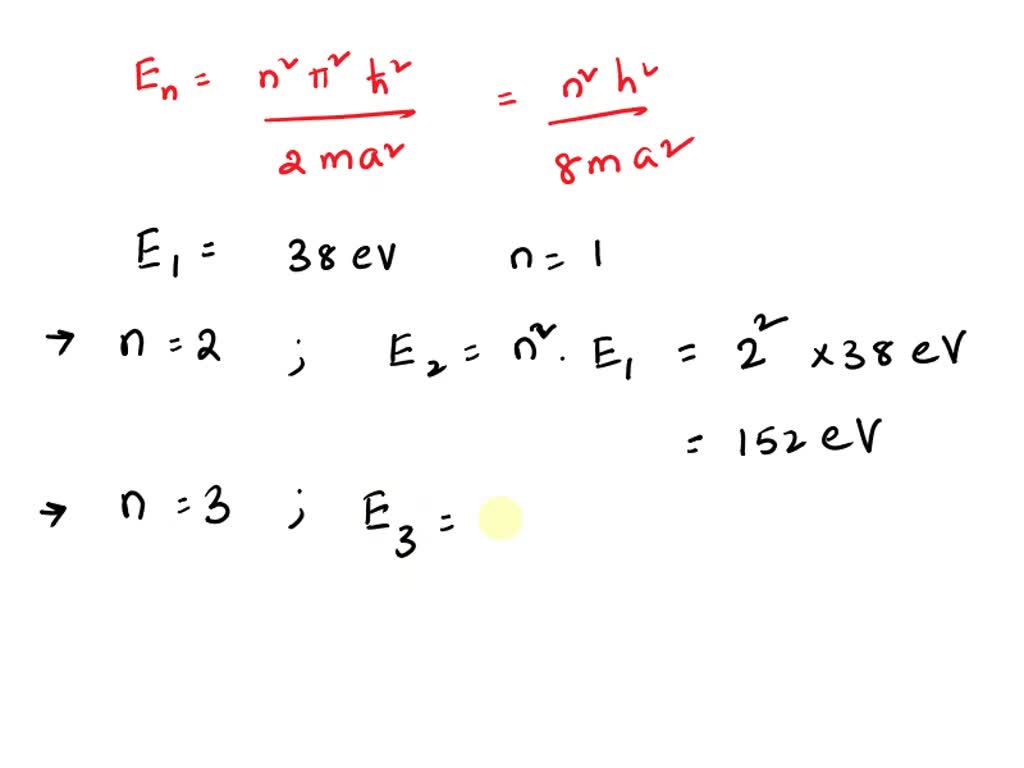 Eₙ = n² π² ħ² / 2 m a² = n² h² / 8 m a²
E₁ = 38 eV n = 1
→ n = 2 ; E₂ = n² . E₁ = 2² × 38 eV
= 152 eV
→ n = 3 ; E₃ =